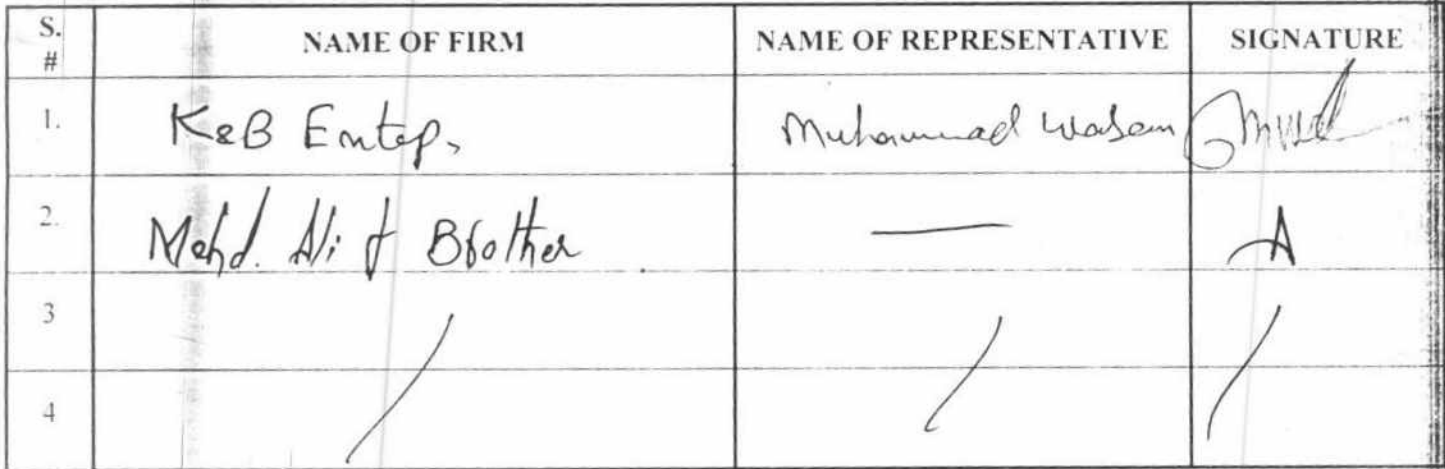 S. # NAME OF FIRM NAME OF REPRESENTATIVE SIGNATURE
1. K&B Entep, Muhammad Wasem
2. Mohd. Ali & Brother —
3
4